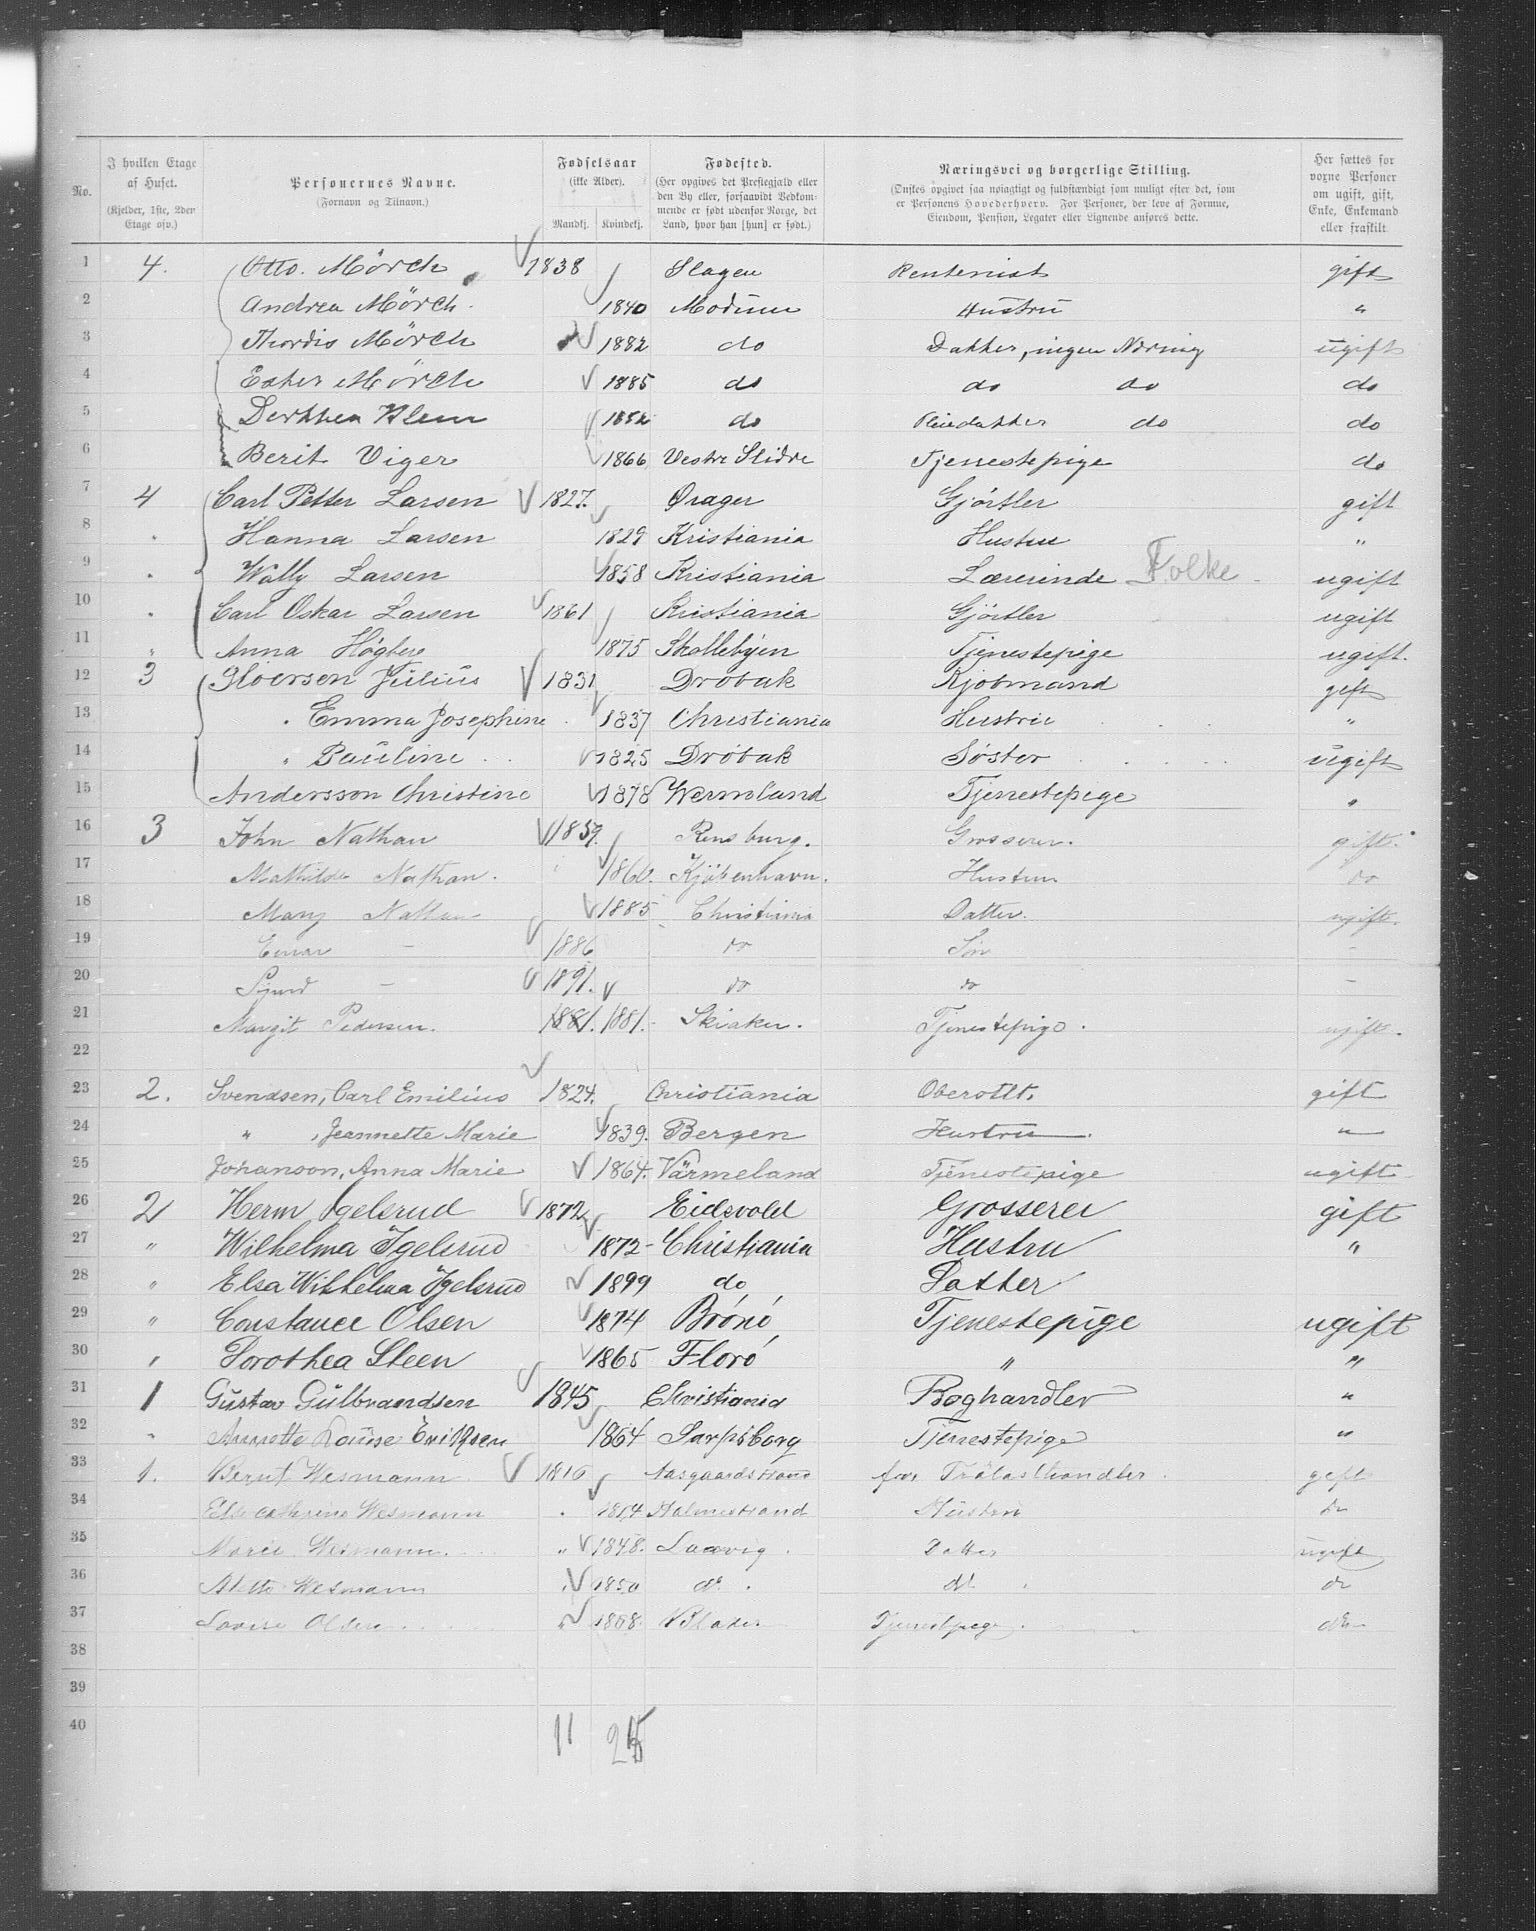 No. I hvilken Etage af Huset. (Kjelder, 1ste, 2den Etage osv.) Personernes Navne. (Fornavn og Tilnavn.) Fødselsaar (ikke Alder). Mandkj. Kvindekj. Fødested. (Her opgives det Prestegjald eller den By eller, forsaavidt Vedkommende er født udenfor Norge, det Land, hvor han [hun] er født.) Næringsvei og borgerlige Stilling. (Ønskes opgivet saa nøiagtigt og fuldstændigt som muligt efter det, som er Personens Hovederhverv. For Personer, der leve af Formue, Eiendom, Pension, Legater eller Lignende anføres dette. Her sættes for voxne Personer om ugift, gift, Enke, Enkemand eller fraskilt.
1 4. Otto. Mörch 1838 Slagen Rentenist gift
2 Andrea Mörch. 1840 Modum Hustru "
3 Thordis Mörch 1882 do Datter, ingen Næring ugift
4 Ester Mörch 1885 do do do do
5 Dorthea Klem 1882 do Pleiedatter do do
6 Berit Viger 1866 Vestre Slidre Tjenestepige do
7 4 Carl Petter Larsen 1827. Gjörtler gift
8 " Hanna Larsen 1829 Kristiania Hustru "
9 " Wally Larsen 1858 Kristiania Lærerinde Folke ugift
10 " Carl Oskar Larsen 1861 Kristiania Gjörtler ugift
11 " Anna 1875 Skollebyen Tjenestepige ugift.
12 3 Gloersen Julius 1831 Drøbak Kjøbmand gift
13 " Emma Josephine 1837 Christiania Hustru "
14 " Pauline 1825 Drøbak Søster ugift
15 Andersson Christine 1878 Wermland Tjenestepige "
16 3 John Nathan 1857. Rensburg. Grosserer. gift.
17 Mathilde Nathan. 1860. Kjøbenhavn. Hustru do
18 Mary Nathan 1885 Christiania Datter. ugift.
19 Einar — 1886 do Søn -
20 Sigurd — 1891. do do -
21 Margit Pedersen. 1881. 1881. Skiaker. Tjenestepige. ugift.
22
23 2. Svendsen, Carl Emilius 1824. Christiania Oberstlt. gift
24 " , Jeannette Marie 1839. Bergen Hustru. "
25 Johanson, Anna Marie 1864. Värmeland Tjenestepige ugift
26 2 Herm Igelsrud 1872 Eidsvold Grosserer gift
27 " Wilhelma Igelsrud 1872 Christiania Hustru "
28 " Elsa Wilhelma Igelsrud 1899 do Datter
29 " Constance Olsen 1874 Brónó Tjenestepige ugift
30 " Dorothea Steen 1865 Floró " "
31 1 Gustav Gulbrandsen 1845 Christiania Boghandler "
32 " Annette Louise Eriksen 1864 Sarpsborg Tjenestepige "
33 1. Bernt Wesmann 1816 Aasgaardstrand for. Trælasthandler gift
34 Else Cathrine Wesmann 1814 Holmestrand Hustru do
35 Marie Wesmann. " 1848. Laurvig. Datter ugift
36 Wesmann " 1850 do. do do
37 Lovise Olsen " 1868. Tjenestpige. do
38
39
40 11 25